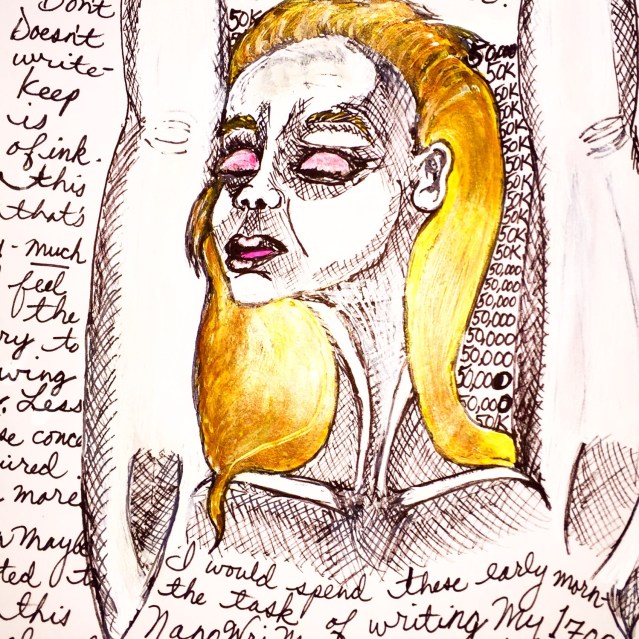 Dont
Doesn't
write-
Keep
is
of ink.
this
that's
- much
feel
the
ry to
wing
Less
se conce
ired
more
Maybe
ted t
this
50K
50,000
50K
50K
50K
50K
50K
50K
50K
50K
50K
50K
50K
50,000
50,000
50,000
50,000
50,000
50,000
50,000
50,000
50K
I would spend these early morn-
the task of writing My 1700
NanoWriM